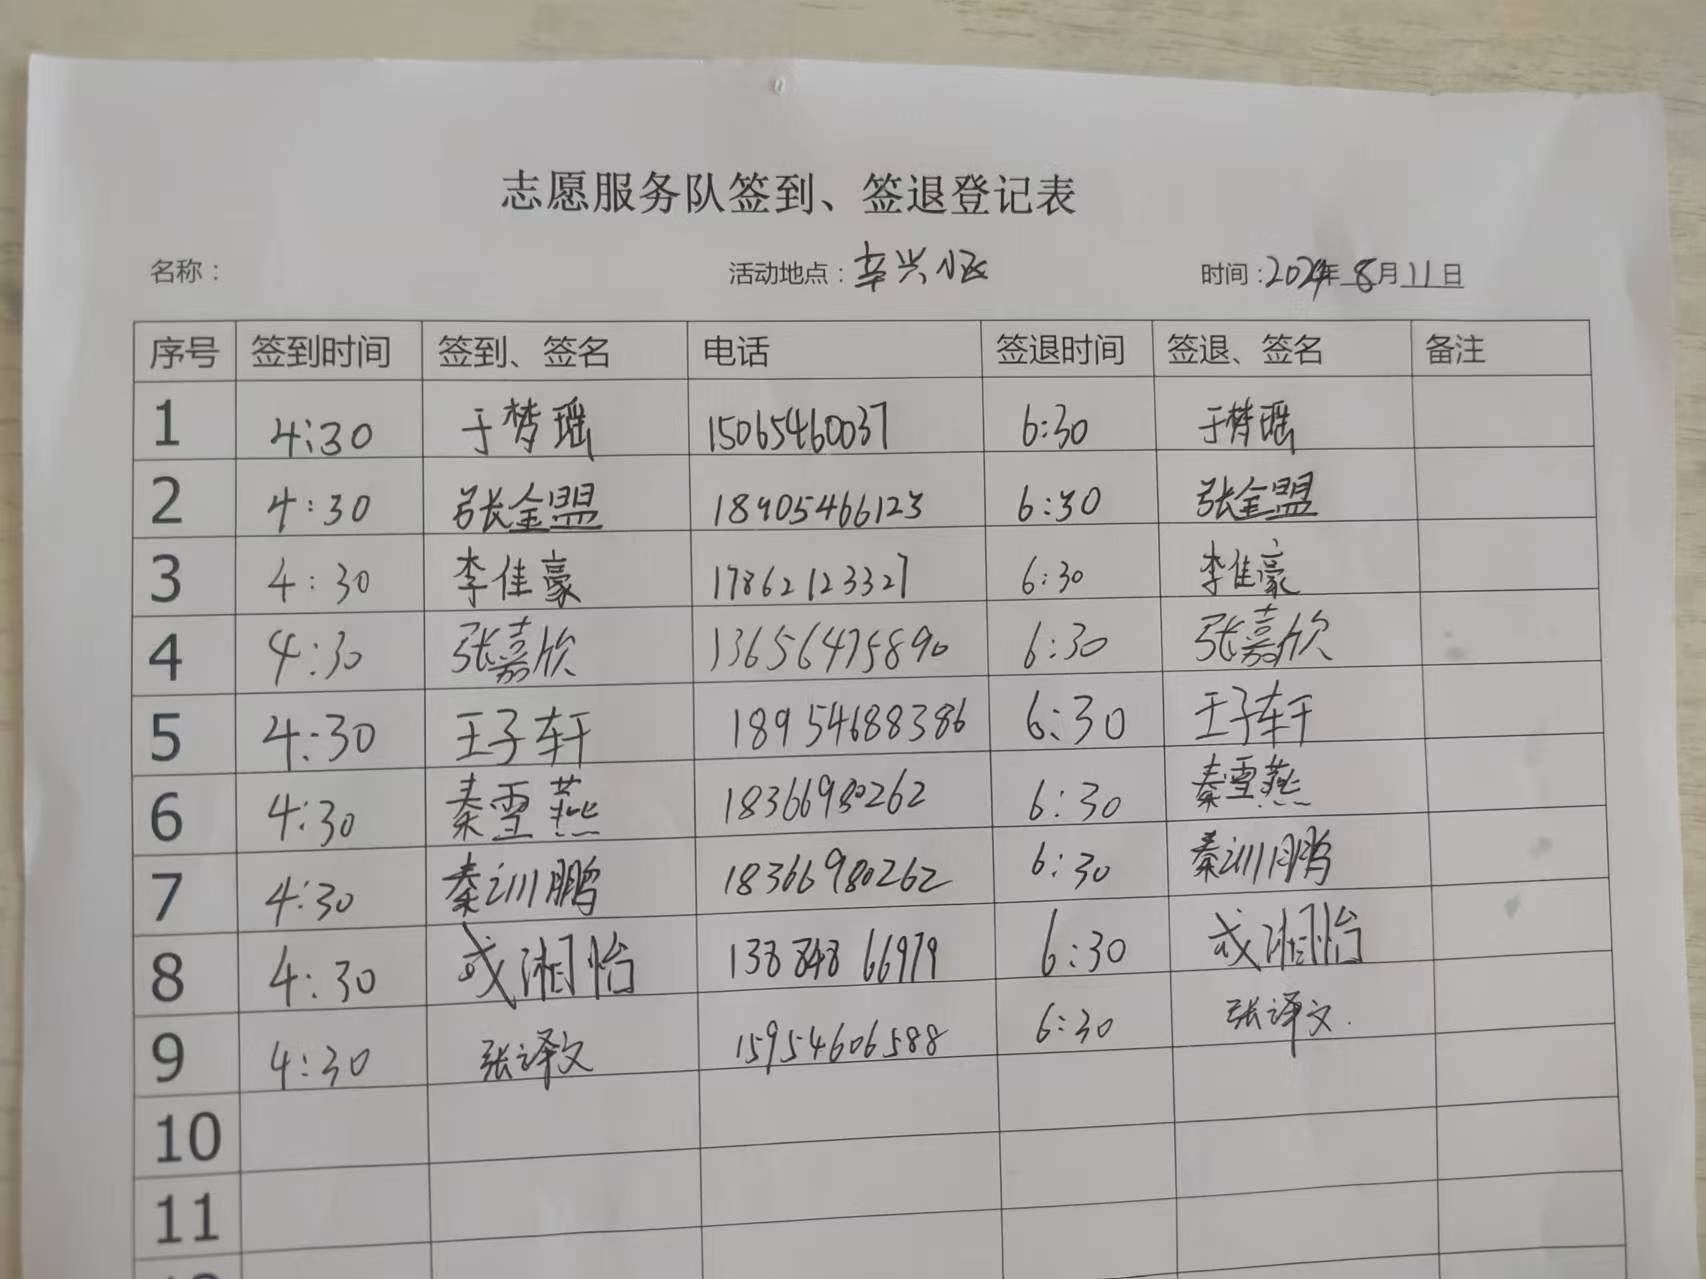 志愿服务队签到、签退登记表
名称： 活动地点：辛兴小区 时间：2024年 8月11日
序号 签到时间 签到、签名 电话 签退时间 签退、签名 备注
1 4:30 于梦瑶 15065460037 6:30 于梦瑶
2 4:30 张金盟 18905466123 6:30 张金盟
3 4:30 李佳豪 17862123327 6:30 李佳豪
4 4:30 张嘉欣 13656475890 6:30 张嘉欣
5 4:30 王子轩 18954688386 6:30 王子轩
6 4:30 秦雪燕 18366980262 6:30 秦雪燕
7 4:30 秦训鹏 18366980262 6:30 秦训鹏
8 4:30 湘怡 6:30 湘怡
9 4:30 张译文 15954606588 6:30 张译文.
10
11